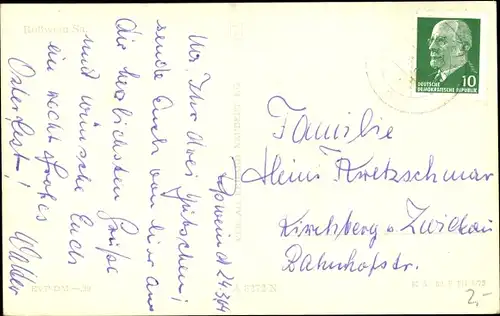 Roßwein Sa.
Roßwein d. 24.3.64
Ihr drei Hübschen!
sende Euch von hier aus
die herzlichsten Grüße
und wünsche Euch
ein recht frohes
Osterfest!
Walter
10
DEUTSCHE
DEMOKRATISCHE REPUBLIK
Familie
Heinz Kretzschmar
Kirchberg b. Zwickau
Bahnhofstr.
2,-